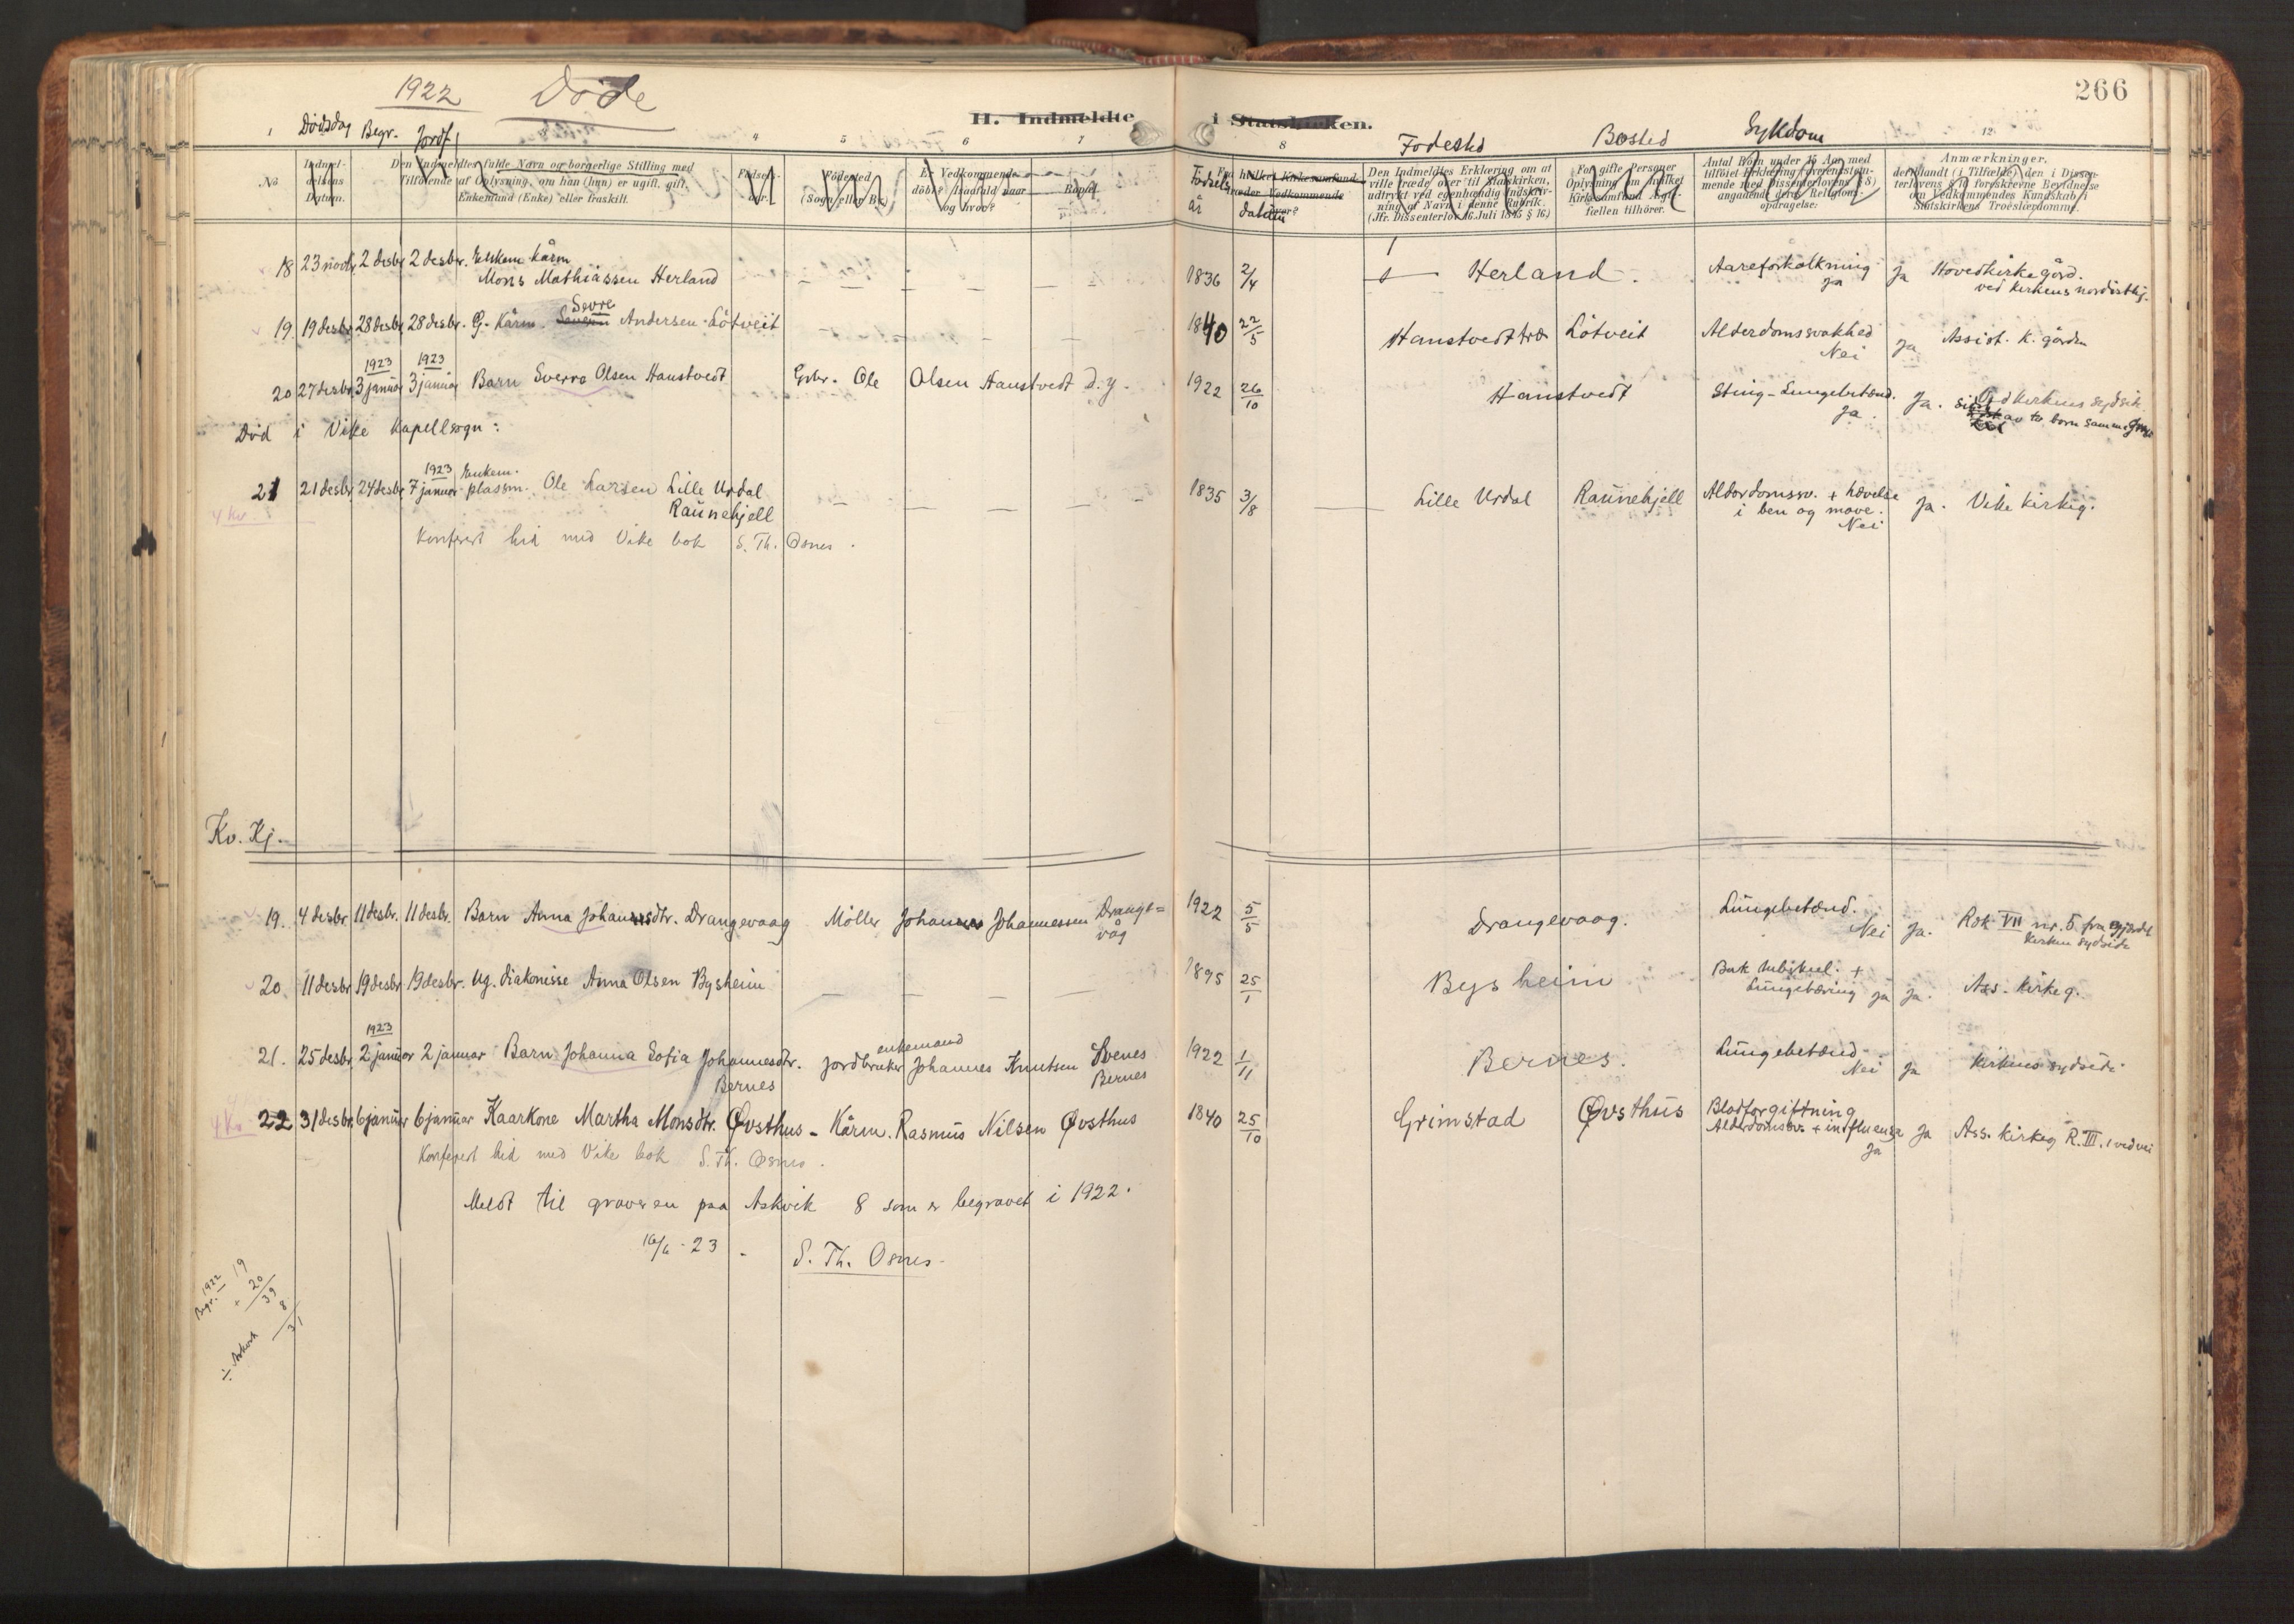 1922 Døde
H. Indmeldte i Statskirken.
266
1 4 5 6 7 8 12
Dødsdag Begr. Jordf. Fødested Bosted Sykdom
No
Indmel-
delsens
Datum.
Den Indmeldtes fulde Navn og borgerlige Stilling med
Tilføiende af Oplysning, om han (hun) er ugift, gift,
Enkemand (Enke) eller fraskilt.
Fødsels-
aar.
Fødested
(Sogn eller By.)
Er Vedkommende
döbt? Isaafald naar
og hvor?
Fødsels år datum
hvilket Kirkesamfund
Vedkommende
Den Indmeldtes Erklæring om at
ville træde over til Statskirken,
udtrykt ved egenhændig Indskriv-
ning af Navn i denne Rubrik.
(Jfr. Dissenterlov 16. Juli 1845 § 16.)
For gifte Personer
Oplysning om hvilket
Kirkesamfund Ægte-
fællen tilhörer.
Antal Börn under 15 Aar, med
tilföiet Erklæring (overensstem-
mende med Dissenterlovens § 8)
angaaende deres Religions-
opdragelse.
Anmærkninger,
deriblandt (i Tilfælde) den i Dissen-
terlovens § 16 foreskrevne Bevidnelse
om Vedkommendes Kundskab i
Statskirkens Troeslærdomme.
18 23 novbr 2 desbr 2 desbr. Enkem. kårm. Mons Mathiassen Herland 1836 2/4 Herland. Aareforkalkning ja Ja Hovedkirkegård. ved kirkens
19. 19 desbr 28 desbr 28 desbr. G. Kårm. Sevre Andersen Løtveit 1840 22/5 Hanstvedttræ Løtveit Alderdomssvakhed Nei Ja Assist. K. gården
20 27 desbr 1923 3 januar 1923 3 januar Barn Sverre Olsen Hanstvedt Gbr. Ole Olsen Hanstvedt d. y. 1922 26/10 Hanstvedt Sting-Lungebetænd. ja. Ja. kirkens sydside av to born samme
Død i Vike kapellsogn:
21 21 desbr 24 desbr 1923 7 januar Enkem. plassm. Ole Larsen Lille Urdal Raunehjell 1835 3/8 Lille Urdal Raunehjell Alderdomssv. + hævelse i ben og mave. Nei Ja. Vike kirkeg.
4 kv
Konferert hid med Vike bok S. Th. Osnes.
Kv. Kj.
19. 4 desbr 11 desbr. 11 desbr. Barn Anna Johannesdtr. Drangevaag Møller Johannes Johannessen Drange=våg 1922 5/5 Drangevaag. Lungebetænd. Nei Ja. Rek VII nr. 5 fra gjerdet kirken sydside
20. 11 desbr 19 desbr 19 desbr. Ug. diakonisse Anna Olsen Bysheim 1895 25/1 Bysheim Buk tuberkul. + Lungetæring ja Ja. Ass. kirkeg.
21. 25 desbr 1923 2 januar 2 januar Barn Johanna Sofia Johannesdtr. Bernes Jordbruker enkemand Johannes Knutsen Svenes Bernes 1922 1/11 Bernes. Lungebetænd. Nei Ja Kirkens sydside
4 kv 22 31 desbr 6 januar 6 januar Kaarkone Martha Monsdtr. Øvsthus - Kårm. Rasmus Nilsen Øvsthus 1840 25/10 Grimstad Øvsthus Blodforgiftning Alderdomssv. + influensa ja Ja Ass. kirkeg R. III. 1 ved vei
Konferert hid med Vike bok S. Th. Osnes.
Meldt til graveren paa Askvik 8 som er begravet i 1922.
16/6 - 23 - S. Th. Osnes.
1922
Begr. 19
+ 20
39
÷ Askvik 8
31